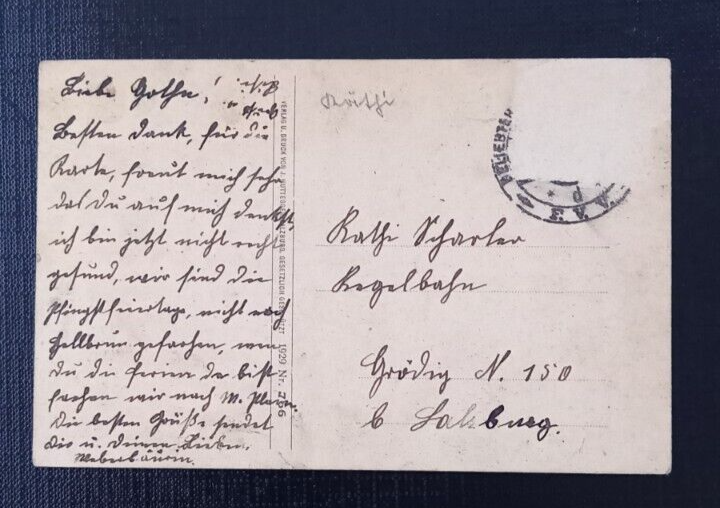 Liebe Gothe!
Besten Dank, für die
Karte, freut mich sehr
das Du auf mich denkst,
ich bin jetzt nicht recht
gesund, wir sind die
Pfingstfeiertage, nicht nach
Hellbrun gefahren, wen
du die Ferien da bist
fahren wir nach M. Plain.
Die besten Grüße sendet
Dir u. Deinen Lieben,
VERLAG U. DRUCK VON J. HUTTEGGER, SALZBURG. GESETZLICH GESCHÜTZT 1929 Nr. 766
Käthi
BELIEBTEN
Kathi Scharler
Kegelbahn
Grödig N. 150
b Salzburg.